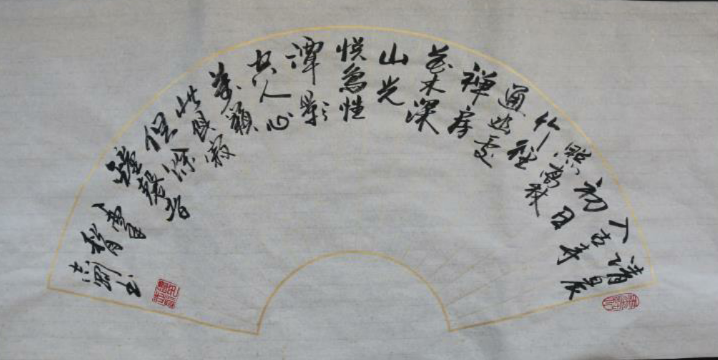 清晨
入古寺
初日
照高林
竹径
通幽处
禅房
花木深
山光
悦鸟性
潭影
空人心
万籁
此俱寂
但馀
钟磬音
书